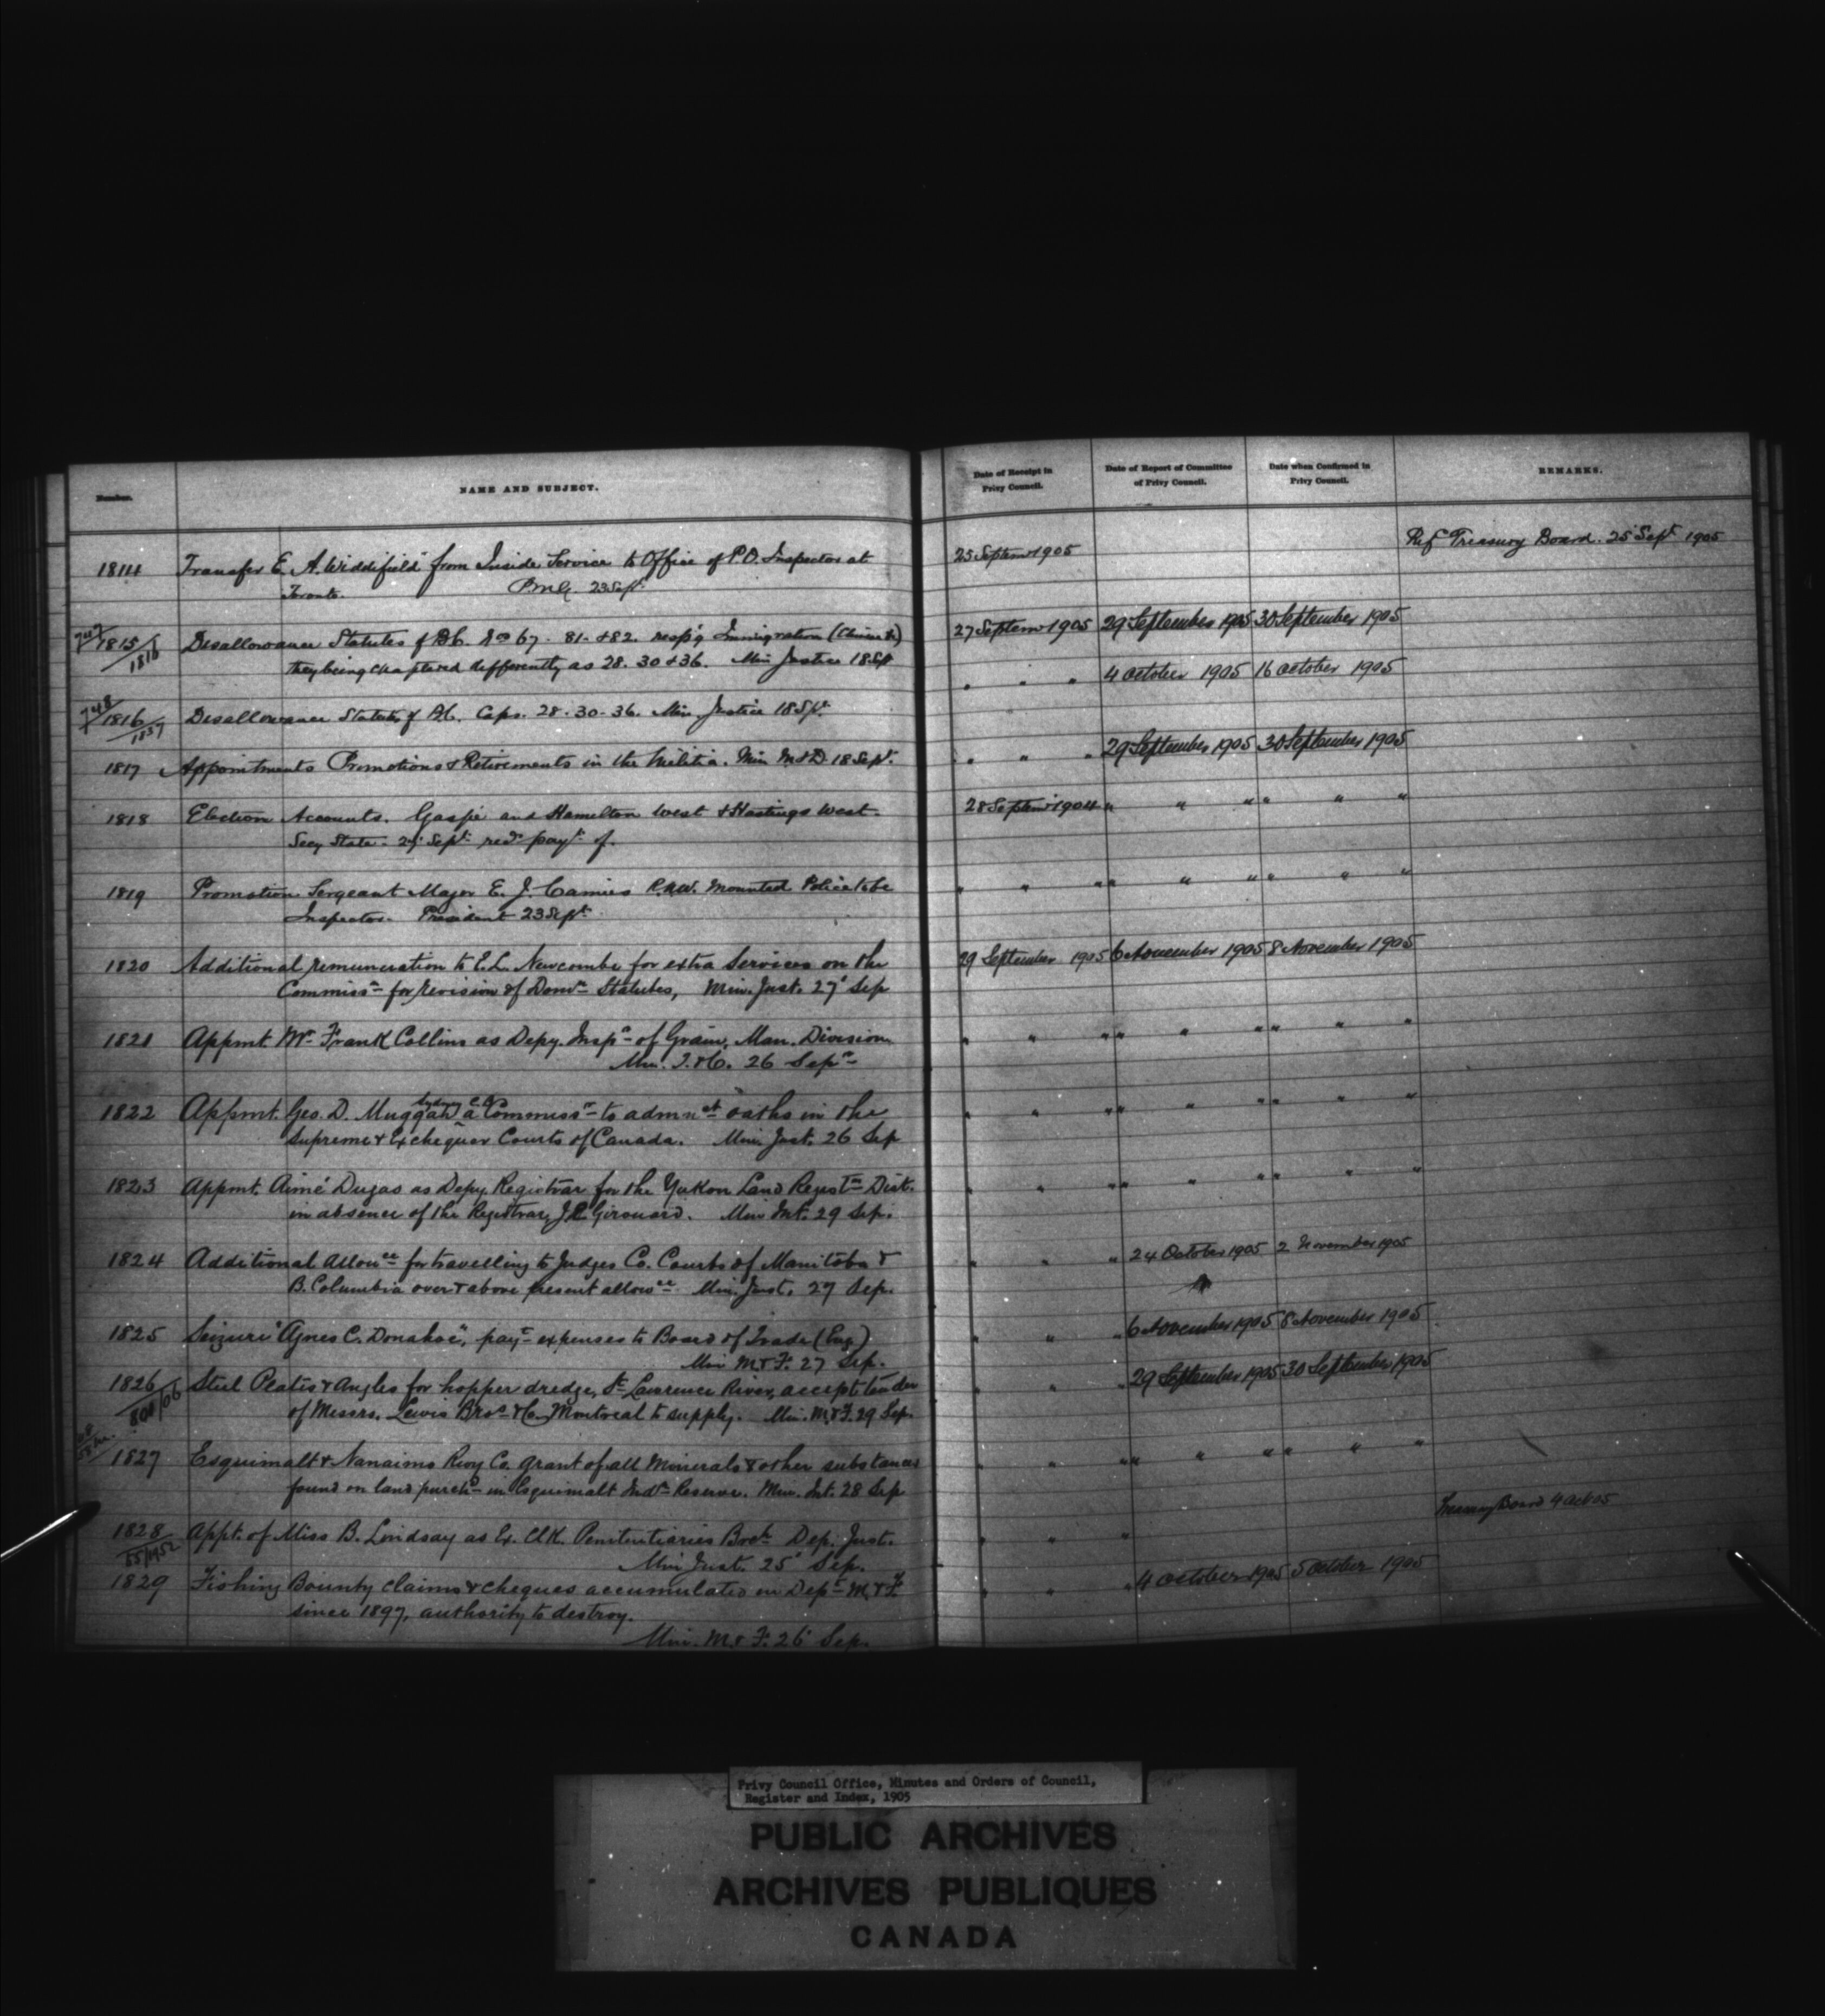 Number.
NAME AND SUBJECT.
Date of Receipt in Privy Council.
Date of Report of Committee of Privy Council.
Date when Confirmed in Privy Council.
REMARKS.
1814 Transfer E. A. Widdifield from Inside Service to Office of P.O. Inspector at
Toronto. P.M.G. 23 Sept.
25 Septemr 1905
Ref Treasury Board. 25 Sept 1905
747/1815/1816 Disallowance Statutes of B.C. Nos 67. 81. & 82. resp'g Immigration (Chinese)
they being chaptered differently as 28. 30 & 36. Min Justice 18 Sept
27 Septemr 1905 29 September 1905 30 September 1905
748/1816/1837 Disallowance Statutes of B.C. Caps. 28. 30. 36. Min. Justice 18 Spt.
" " " 4 October 1905 16 October 1905
1817 Appointments Promotions & Retirements in the Militia. Min M & D. 18 Sept.
" " " 29 September 1905 30 September 1905
1818 Election Accounts. Gaspé and Hamilton West & Hastings West.
Secy State. 27 Sept. red payt of.
28 Septemr 1904 " " " " " "
1819 Promotion Sergeant Major E. J. Camies R.N.W. Mounted Police to be
Inspector. President 23 Sept.
" " " " " " " " "
1820 Additional remuneration to E. L. Newcombe for extra services on the
Commissn for revision of Domn Statutes, Min. Just. 27 Sep
29 September 1905 6 November 1905 8 November 1905
1821 Appmt Mr Frank Collins as Depy. Inspr of Grain, Man. Division
Min. T. & C. 26 Sepr
" " " " " " " "
1822 Appmt. Geo. D. Muggah Sydney C.B. a Commissr to admn oaths in the
Supreme & Exchequer Courts of Canada. Min. Just. 26 Sep
" " " " " " " "
1823 Appmt. Aimé Dugas as Depy Registrar for the Yukon Land Registn Dist.
in absence of the Registrar J.E. Girouard. Min Int. 29 Sep.
" " " " " " " "
1824 Additional Allowce for travelling to Judges Co. Courts of Manitoba &
B. Columbia over & above present allowce Min. Just. 27 Sep.
" " " 24 October 1905 2 November 1905
1825 Seizure "Agnes C. Donahoe", payt expenses to Board of Trade (Eng)
Min M & F. 27 Sep.
" " " 6 November 1905 8 November 1905
1826/804/06 Steel Plates & Angles for hopper dredge, St Lawrence River, accept tender
of Messrs. Lewis Bros & Co Montreal to supply. Min. M. & F. 29 Sep.
" " " 29 September 1905 30 September 1905
1827 Esquimalt & Nanaimo Rwy Co. grant of all Minerals & other substances
found on land purchd in Esquimalt Indn Reserve. Min. Int. 28 Sep
" " " " " " " "
1828 Appt. of Miss B. Lindsay as Ex. Clk. Penitentiaries Brch Dep. Just.
Min Just. 25 Sep.
" " "
Treasury Board 4 Oct 05
1829 Fishing Bounty claims & cheques accumulated in Dept M. & F.
since 1897, authority to destroy.
Min. M. & F. 26 Sep.
" " " 4 October 1905 5 October 1905
Privy Council Office, Minutes and Orders of Council,
Register and Index, 1905
PUBLIC ARCHIVES
ARCHIVES PUBLIQUES
CANADA